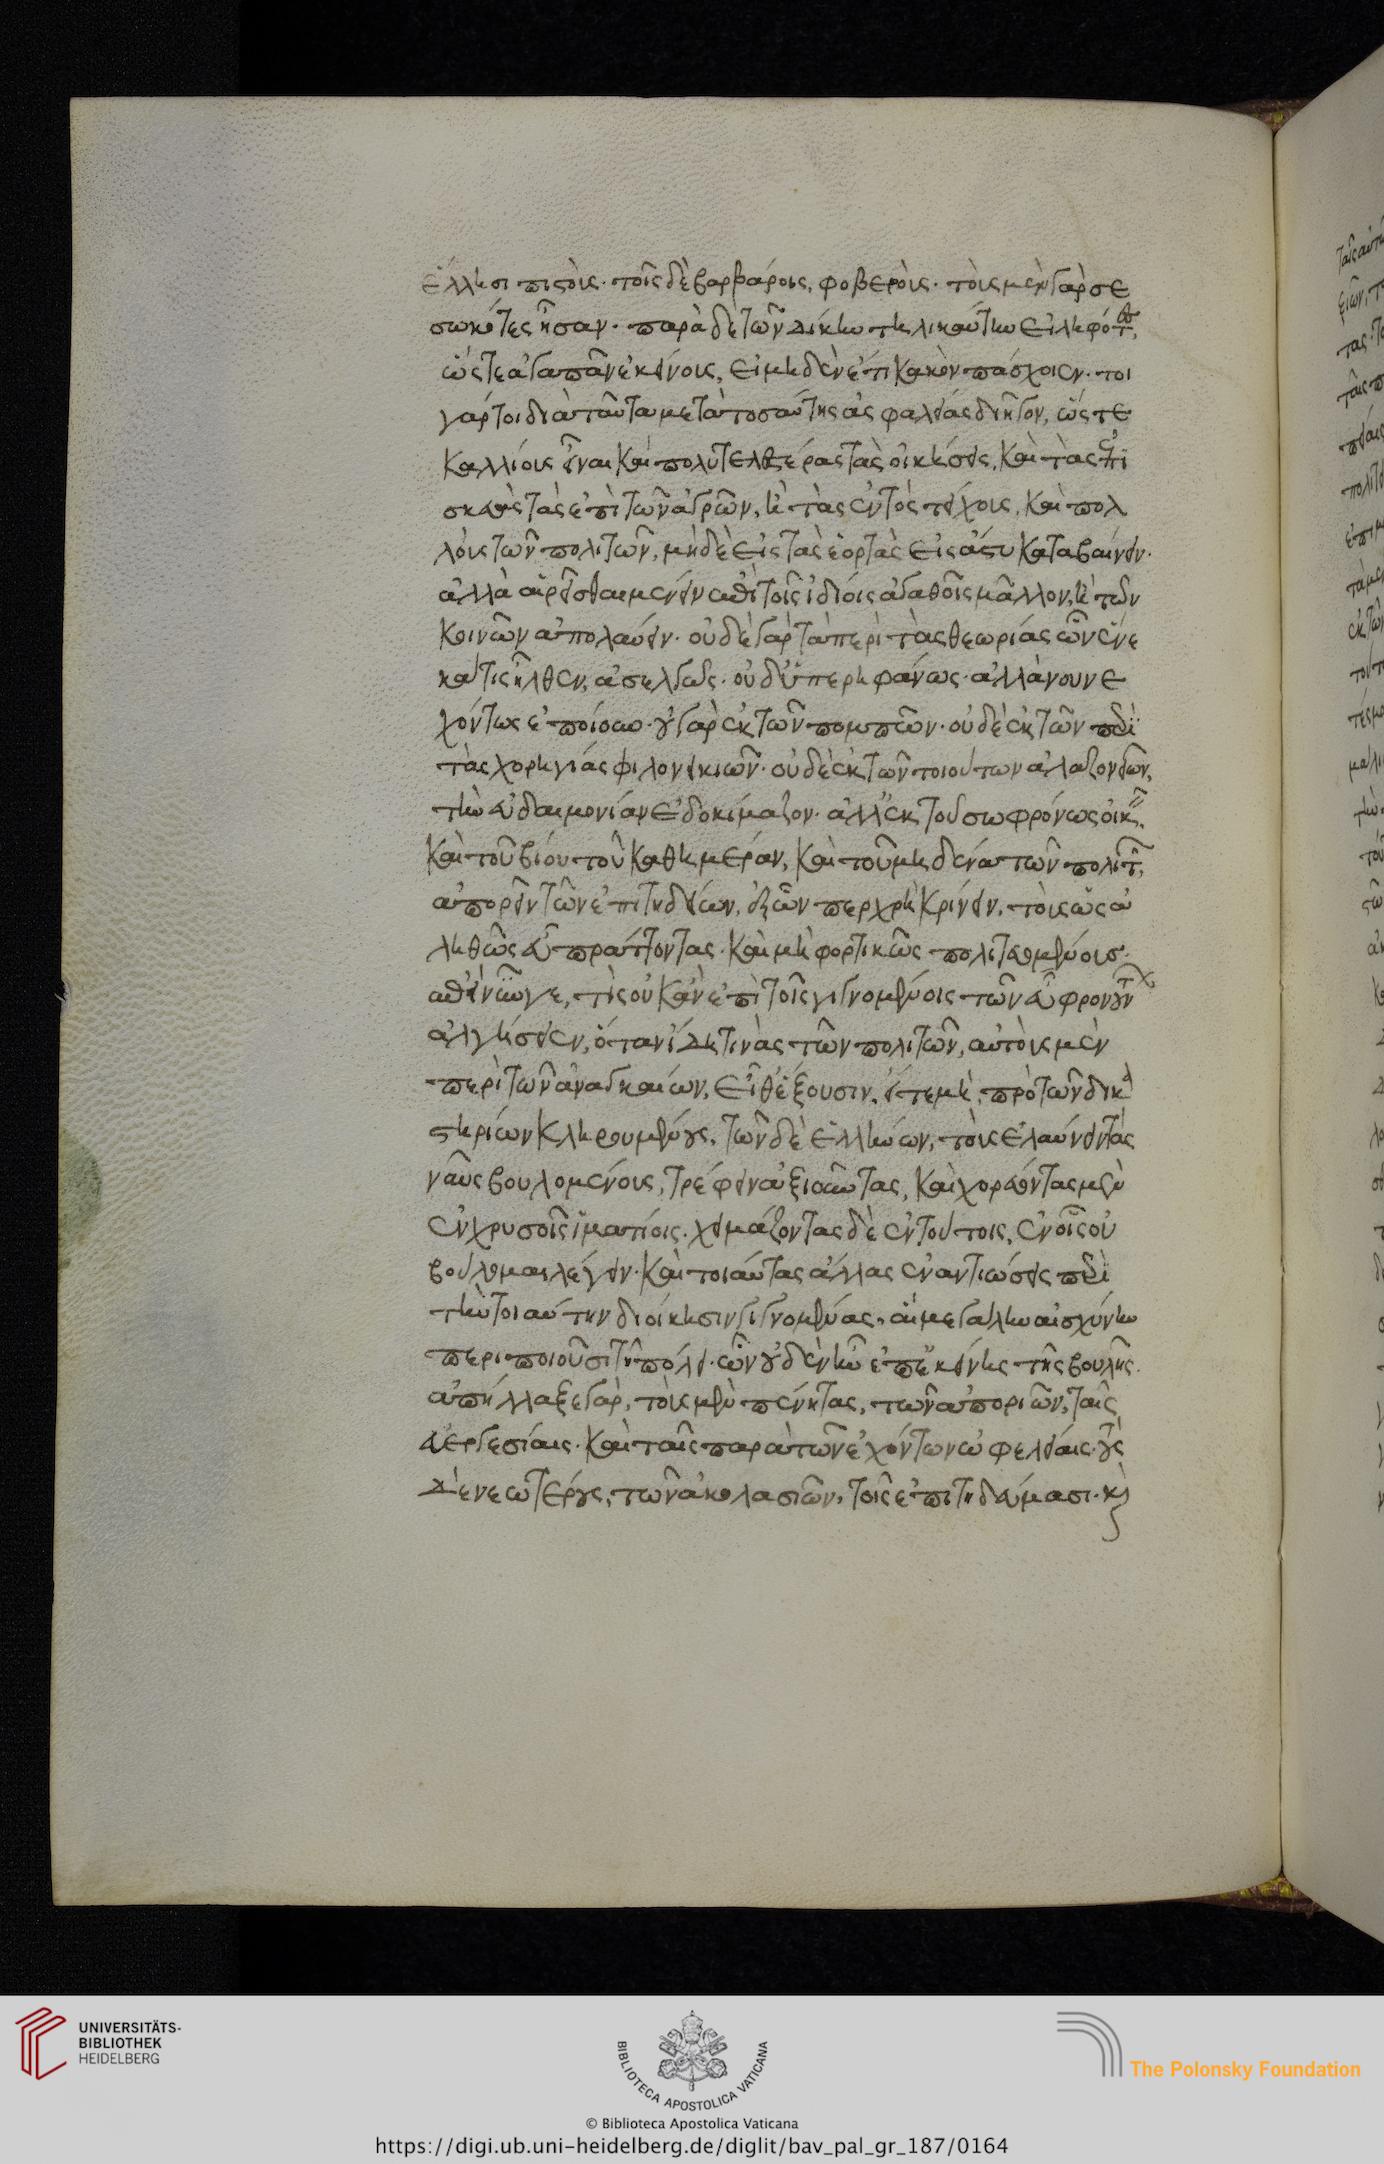 ἕλλησι πιστοὶς· τοῖς δὲ βαρβάροις, φοβεροὶς· τοὺς μὲν γὰρ σε
σωκότες ἦσαν· παρὰ δε τῶν δίκην τηλικαύτην εἰληφότες,
ὥστε ἀγαπᾶν ἐκείνοις, εἰ μηδὲν ἔτι κακὸν πάσχοιεν· τοι
γάρτοι διὰ ταῦτα μετὰ τοσαύτης ἀσφαλείας διῆγον, ὥστε
καλλίοις εἶναι καὶ πολυτελεστέρας τὰς οἰκήσεις, καὶ τὰς ἐπι
σκευὰς τὰς ἐπὶ τῶν ἀγρῶν, ἢ τὰς ἐντὸς τείχοις, καὶ πολ
λοὺς τῶν πολιτῶν, μηδὲ εἰς τὰς ἑορτὰς εἰς ἄστυ καταβαίνειν·
ἀλλὰ αἱρεῖσθαι μένειν ἐπὶ τοῖς ἰδίοις ἀγαθοῖς μᾶλλον, ἢ τῶν
κοινῶν ἀπολαύειν· οὐδὲ γὰρ τὰ περὶ τὰς θεωρίας ὧν ἕνε
κα τις ἦλθεν, ἀσελγῶς· οὐδ' ὑπερηφάνως· ἀλλὰ νουνε
χόντως ἐποίουν· οὐ γὰρ ἐκ τῶν πομπῶν· οὐδὲ ἐκ τῶν περὶ
τὰς χορηγίας φιλονεικιῶν· οὐδὲ ἐκ τῶν τοιούτων ἀλαζονειῶν,
τὴν εὐδαιμονίαν ἐδοκίμαζον· ἀλλ' ἐκ τοῦ σωφρόνως οἰκεῖν,
καὶ τοῦ βίου τοῦ καθημέραν, καὶ τοῦ μηδένα τῶν πολιτῶν,
ἀπορεῖν τῶν ἐπιτηδείων, ἐξ ὧν περ χρὴ κρίνειν, τοὺς ὡς ἀ
ληθῶς εὖ πράττοντας· καὶ μὴ φορτικῶς πολιτευομένους·
ἐπεὶ νῦν γε, τὶς οὐκ ἂν ἐπὶ τοῖς γιγνομένοις τῶν εὖ φρονούντων
ἀλγήσειεν, ὅταν ἴδη τινὰς τῶν πολιτῶν, αὐτοὺς μὲν
περὶ τῶν ἀναγκαίων, εἴθ' ἕξουσιν, εἴτε μὴ, πρὸ τῶν δικα
στηρίων κληρουμένους, τῶν δὲ ἑλλήνων, τοὺς ἐλαύνειν τὰς
ναῦς βουλομένοις, τρέφειν ἀξιοῦντας, καὶ χορεύοντας μὲν
ἐν χρυσοῖς ἱματίοις· χειμάζοντας δὲ ἐν τούτοις, ἐν οἷς οὐ
βούλομαι λέγειν· καὶ τοιαύτας ἄλλας ἐναντιώσεις περὶ
τὴν τοιαύτην διοίκησιν γιγνομένας, αἳ μεγάλην αἰσχύνην
περιποιοῦσι τῆ πόλει· ὧν οὐδὲν ἦν ἐπ' ἐκείνης τῆς βουλῆς.
ἀπήλλαξε γὰρ, τοὺς μὲν πένητας, τῶν ἀποριῶν, ταῖς
ἐεργεσίαις· καὶ ταῖς παρὰ τῶν ἐχόντων ὠφελείαις· τοὺς
δὲ νεωτέρους, τῶν ἀκολασιῶν, τοῖς ἐπιτηδεύμασι· καὶ
UNIVERSITÄTS-
BIBLIOTHEK
HEIDELBERG
BIBLIOTECA APOSTOLICA VATICANA
The Polonsky Foundation
© Biblioteca Apostolica Vaticana
https://digi.ub.uni-heidelberg.de/diglit/bav_pal_gr_187/0164